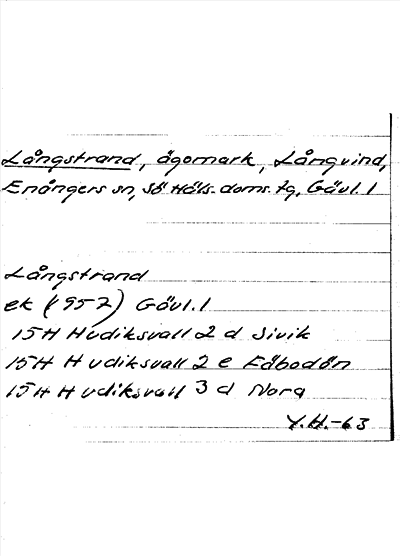 Långstrand, ägomark, Långvind,
Enångers sn, Sö Häls. doms. tg, Gävl. l
Långstrand
ek (1957) Gävl. l
15H Hudiksvall 2 d Sivik
15H Hudiksvall 2 e Fäbodön
15H Hudiksvall 3 d Nora
Y.H.-63